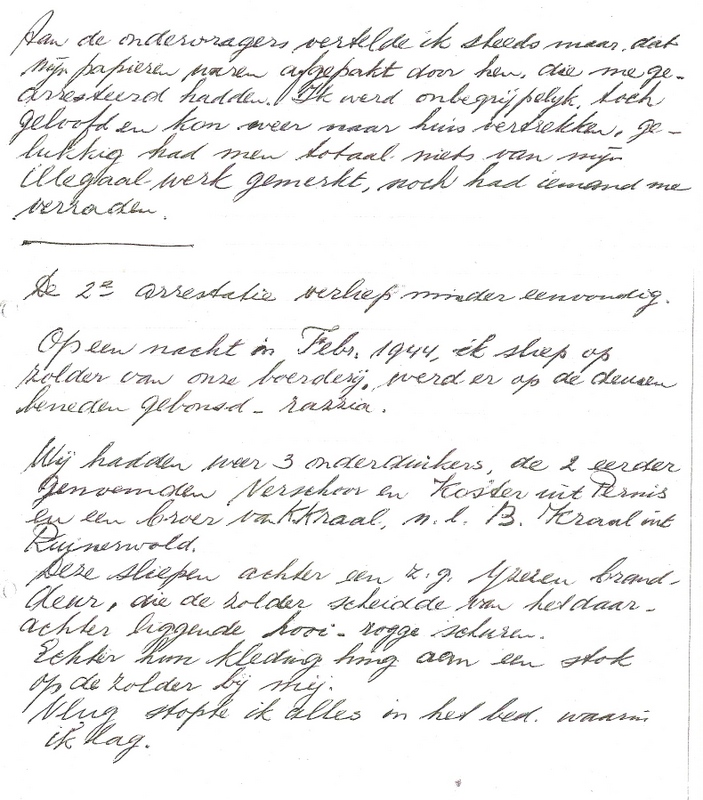 Aan de ondervragers vertelde ik steeds maar, dat
mijn papieren waren afgepakt door hen, die me ge-
arresteerd hadden. Ik werd onbegrijpelijk, toch
geloofd en kon weer naar huis vertrekken, ge-
lukkig had men totaal niets van mijn
illegaal werk gemerkt, noch had iemand me
verraden.
De 2e arrestatie verliep minder eenvoudig.
Op een nacht in Febr. 1944, ik sliep op
zolder van onze boerderij, werd er op de deuren
beneden gebonsd - razzia.
Wij hadden weer 3 onderduikers, de 2 eerder
genoemden Verschoor en Koster uit Pernis
en een broer van K Kraal, n.l. B. Kraal uit
Ruinerwold.
Deze sliepen achter een z.g. ijzeren brand-
deur, die de zolder scheidde van het daar-
achter liggende hooi - rogge schuren.
Echter hun kleding hing aan een stok
op de zolder bij mij.
Vlug stopte ik alles in het bed. waarin
ik lag.